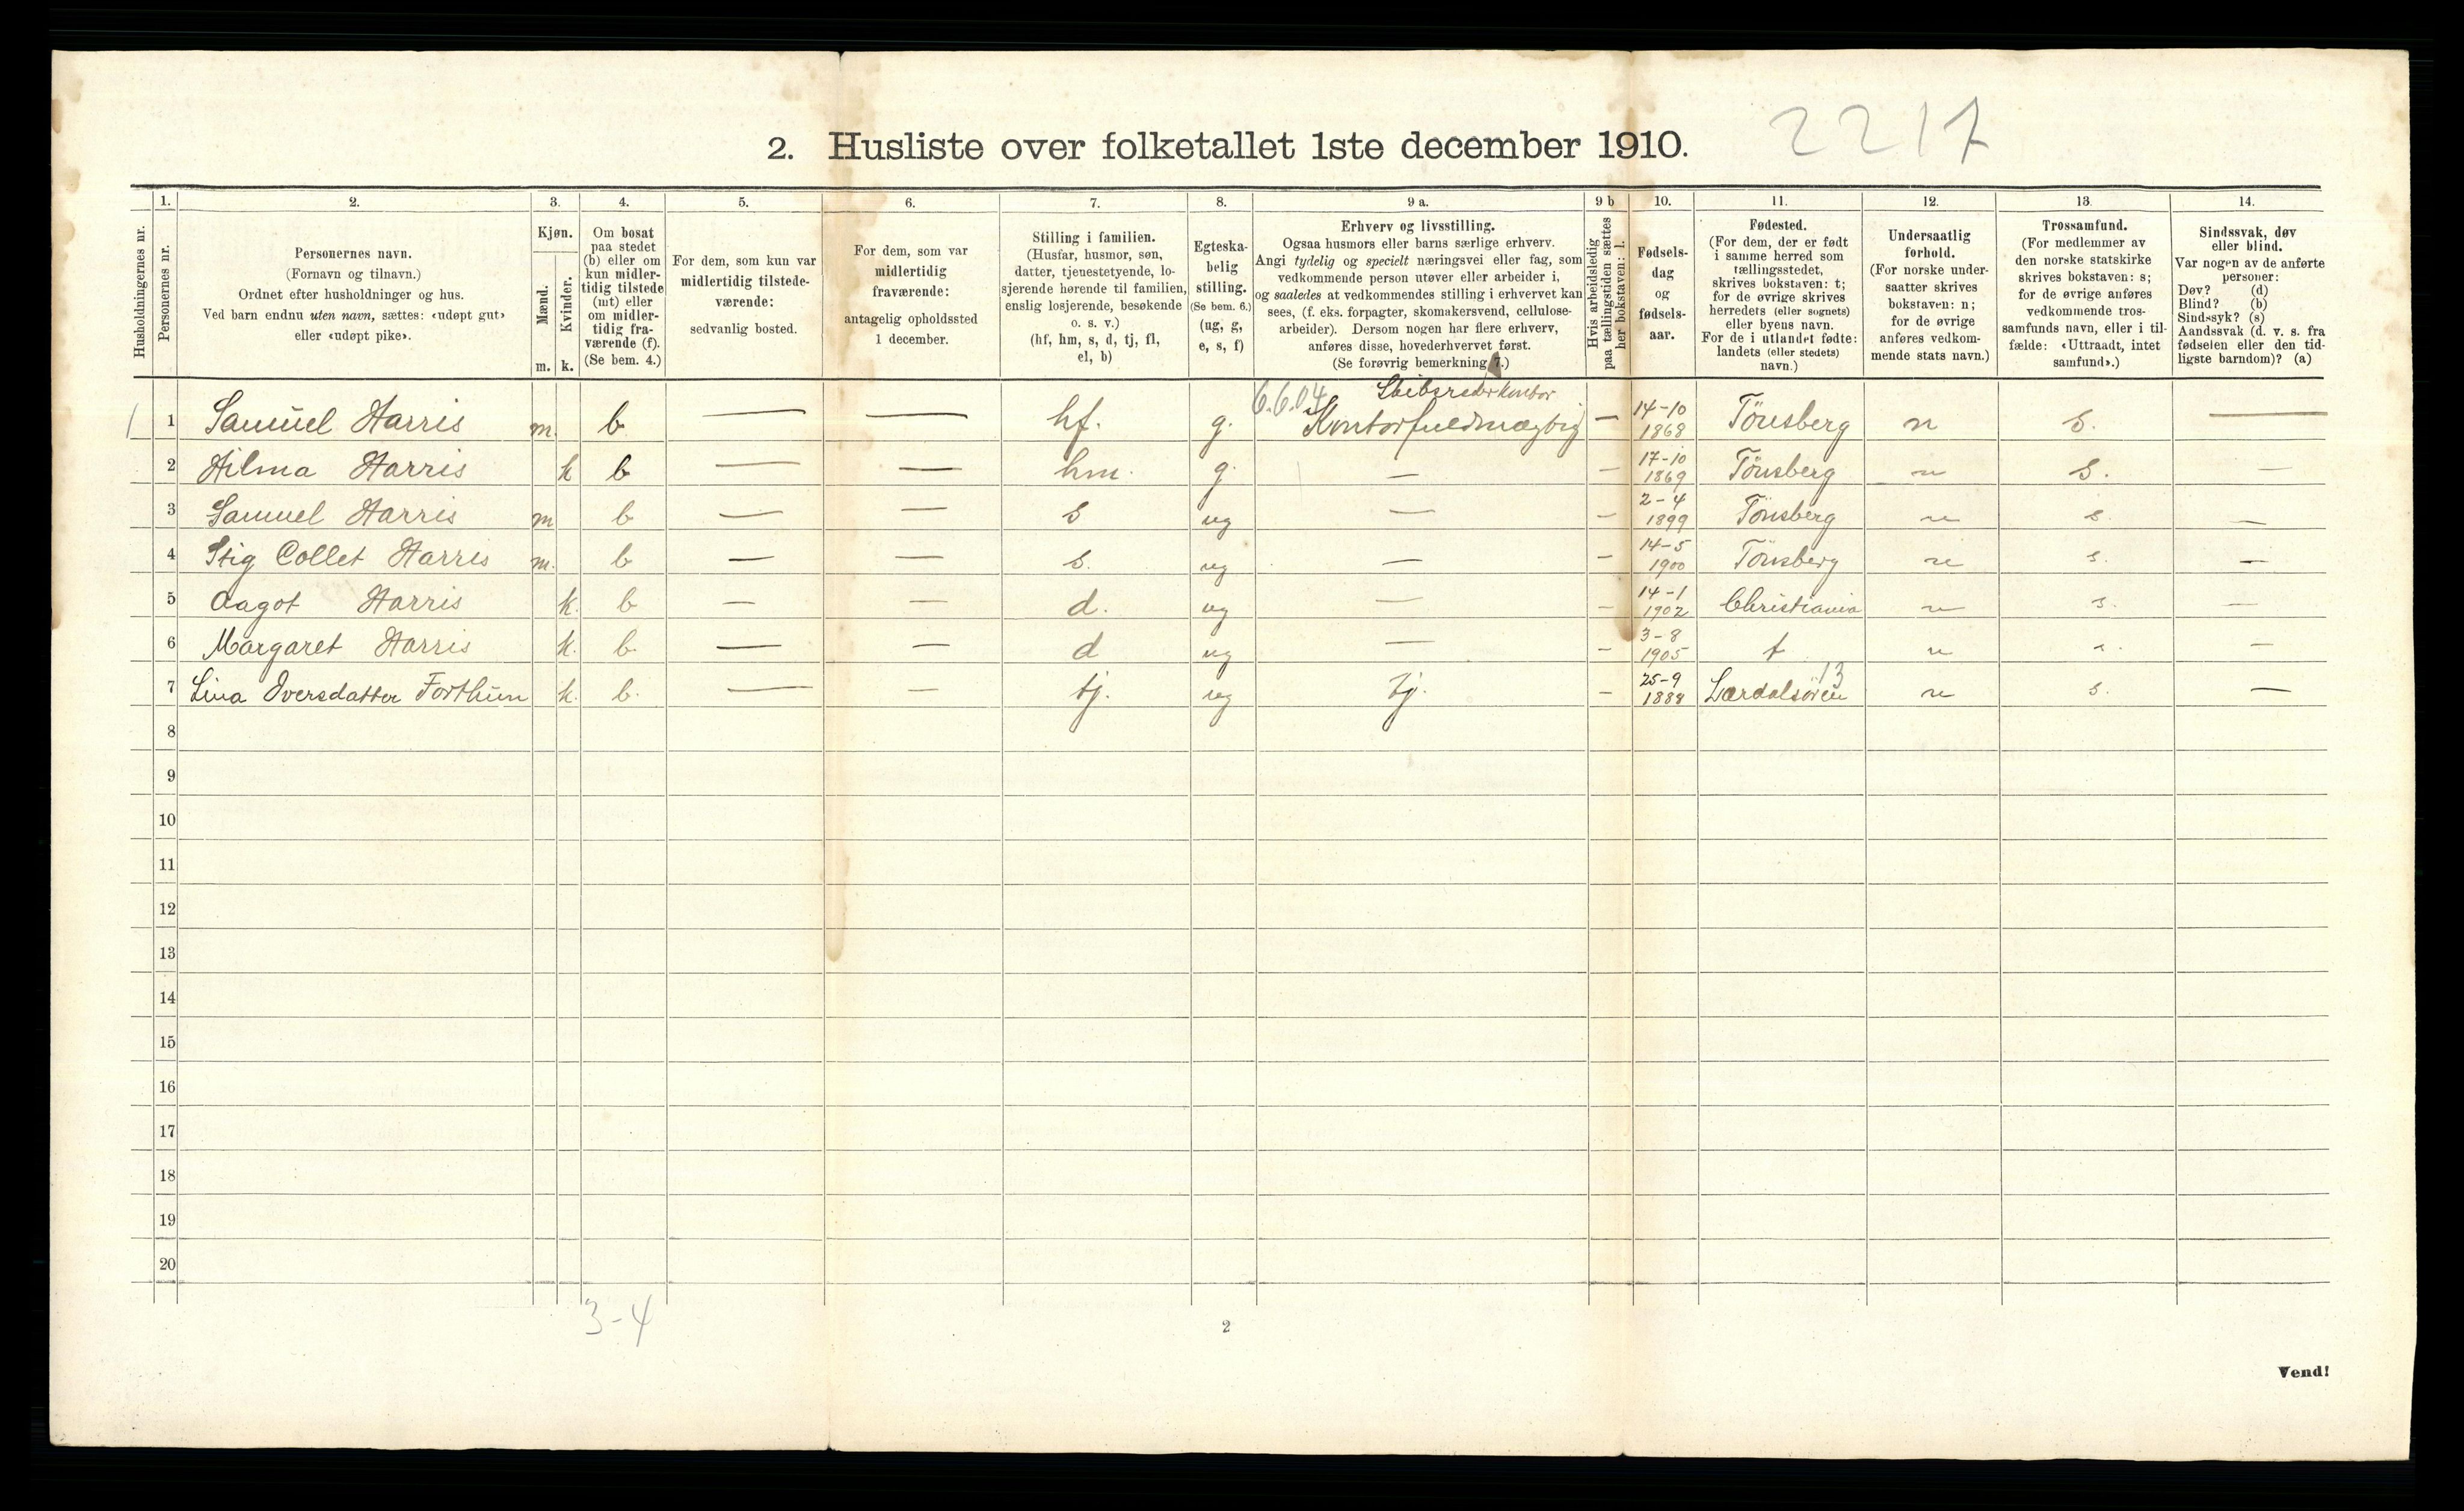 2217
2. Husliste over folketallet 1ste december 1910.
Husholdningernes nr.
1.
Personernes nr.
2.
Personernes navn.
(Fornavn og tilnavn.)
Ordnet efter husholdninger og hus.
Ved barn endnu uten navn, sættes: «udøpt gut»
eller «udøpt pike».
3.
Kjøn.
Mænd.
m.
Kvinder.
k.
4.
Om bosat
paa stedet
(b) eller om
kun midler-
tidig tilstede
(mt) eller
om midler-
tidig fra-
værende (f).
(Se bem. 4.)
5.
For dem, som kun var
midlertidig tilstede-
værende:
sedvanlig bosted.
6.
For dem, som var
midlertidig
fraværende:
antagelig opholdssted
1 december.
7.
Stilling i familien.
(Husfar, husmor, søn,
datter, tjenestetyende, lo-
sjerende hørende til familien,
enslig losjerende, besøkende
o. s. v.)
(hf, hm, s, d, tj, fl,
el, b)
8.
Egteska-
belig
stilling.
(Se bem. 6.)
(ug, g,
e, s, f)
9 a.
Erhverv og livsstilling.
Ogsaa husmors eller barns særlige erhverv.
Angi tydelig og specielt næringsvei eller fag, som
vedkommende person utøver eller arbeider i,
og saaledes at vedkommendes stilling i erhvervet kan
sees, (f. eks. forpagter, skomakersvend, cellulose-
arbeider). Dersom nogen har flere erhverv,
anføres disse, hovederhvervet først.
(Se forøvrig bemerkning 7.)
9 b
Hvis arbeidsledig
paa tællingstiden sættes
her bokstaven: l.
10.
Fødsels-
dag
og
fødsels-
aar.
11.
Fødested.
(For dem, der er født
i samme herred som
tællingsstedet,
skrives bokstaven: t;
for de øvrige skrives
herredets (eller sognets)
eller byens navn.
For de i utlandet fødte:
landets (eller stedets)
navn.)
12.
Undersaatlig
forhold.
(For norske under-
saatter skrives
bokstaven: n;
for de øvrige
anføres vedkom-
mende stats navn.)
13.
Trossamfund.
(For medlemmer av
den norske statskirke
skrives bokstaven: s;
for de øvrige anføres
vedkommende tros-
samfunds navn, eller i til-
fælde: «Uttraadt, intet
samfund».)
14.
Sindssvak, døv
eller blind.
Var nogen av de anførte
personer:
Døv? (d)
Blind? (b)
Sindssyk? (s)
Aandssvak (d. v. s. fra
fødselen eller den tid-
ligste barndom)? (a)
6.6.04
1 1 Samuel Harris m. b — — hf. g. Kontorfuldmægtig — 14-10 1868 Tönsberg n s. —
2 Hilma Harris k b — — hm. g. — — 17-10 1869 Tönsberg n s. —
3 Samuel Harris m b — — s ug — — 2-4 1899 Tönsberg n s. —
4 Stig Collet Harris m. b — — s. ug — — 14-5 1900 Tönsberg n s. —
5 Aagot Harris k. b — — d. ug — — 14-1 1902 Christiania n s. —
6 Margaret Harris k. b. — — d ug — — 3-8 1905 t n s. —
13
7 Lina Iversdatter Forthun k. b. — — tj. ug tj. — 25-9 1888 Lærdalsören n s. —
8
9
10
11
12
13
14
15
16
17
18
19
20
3-4
2
Vend!